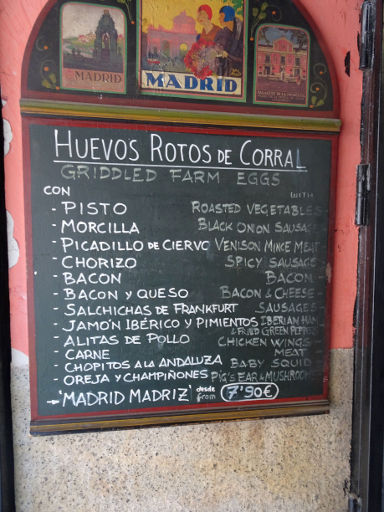 MADRID
MADRID
HUEVOS ROTOS DE CORRAL
GRIDDLED FARM EGGS
CON WITH
- PISTO ROASTED VEGETABLES
- MORCILLA BLACK ONION SAUSAGE
- PICADILLO DE CIERVO VENISON MINCE MEAT
- CHORIZO SPICY SAUSAGE
- BACON BACON -
- BACON Y QUESO BACON & CHEESE -
- SALCHICHAS DE FRANKFURT SAUSAGES
- JAMÓN IBÉRICO Y PIMIENTOS IBERIAN HAM & FRIED GREEN PEPPERS
- ALITAS DE POLLO CHICKEN WINGS -
- CARNE MEAT -
- CHOPITOS A LA ANDALUZA BABY SQUID -
- OREJA Y CHAMPIÑONES PIG'S EAR & MUSHROOMS
→ 'MADRID MADRIZ' desde from 7'90€